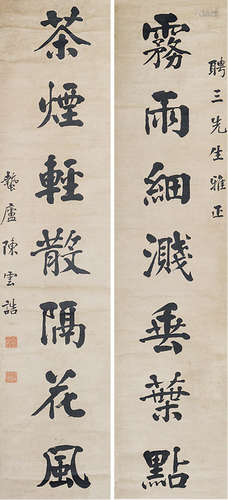 聘三先生雅正
霧雨細濺垂葉點
茶煙輕散隔花風
蟄廬陳雲誥